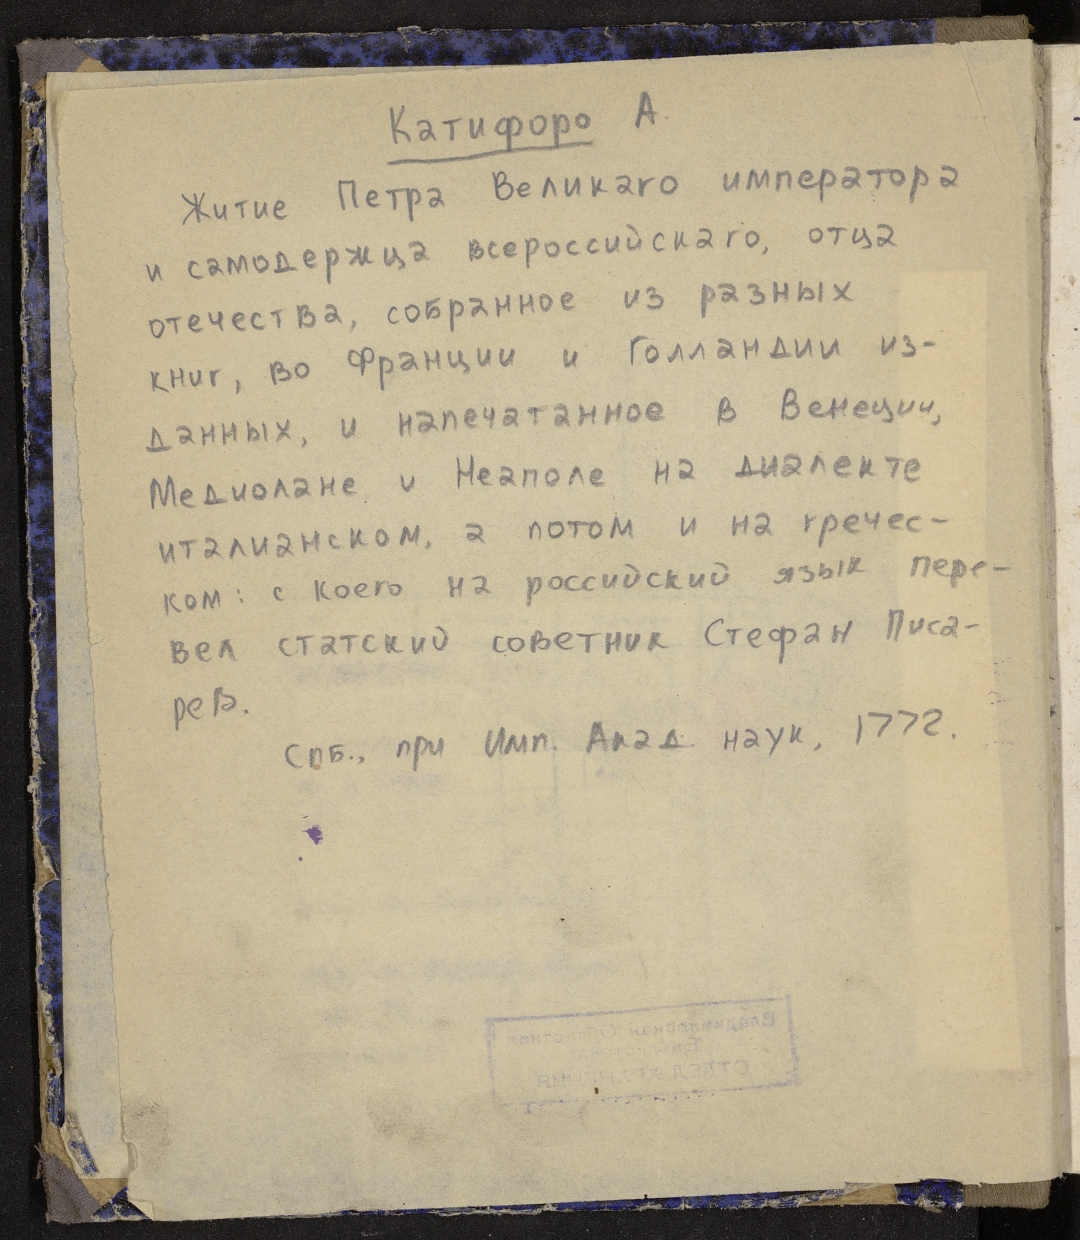 Катифоро А.
Житие Петра Великаго императора
и самодержца всероссийскаго, отца
отечества, собранное из разных
книг, во Франции и Голландии из-
данных, и напечатанное в Венеции,
Медиолане и Неаполе на диалекте
италианском, а потом и на гречес-
ком: с коего на российский язык пере-
вел статский советник Стефан Писа-
рев.
Спб., при Имп. Акад. наук, 1772.
Владимирская Областная
Библиотека
ОТДЕЛ ХРАНЕНИЯ